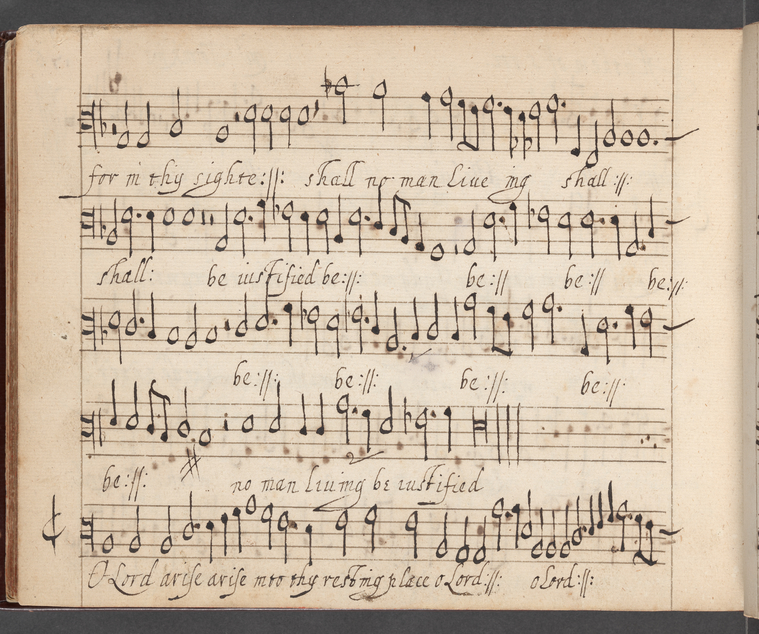 for in thy sighte :||: shall no man Liue ing shall :||:
shall: be iustified be :||: be :|| be :|| be :||:
be :||: be :||: be :||: be :||:
be :||: no man liuing be iustified
O Lord arise arise into thy resting place o Lord :||: o Lord :||: